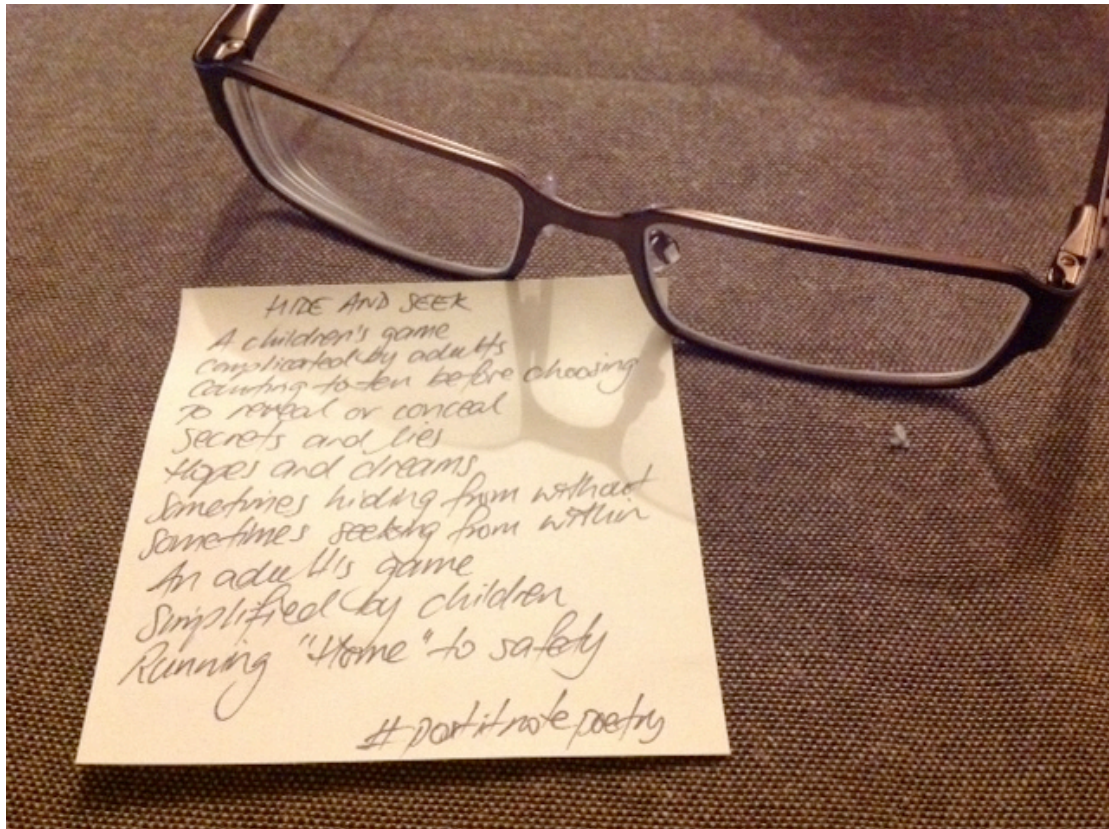 HIDE AND SEEK
A children's game
complicated by adults
counting to ten before choosing
To reveal or conceal
Secrets and lies
Hopes and dreams
Sometimes hiding from without
Sometimes seeking from within
An adult's game
Simplified by children
Running "Home" to safety
#postitnotepoetry